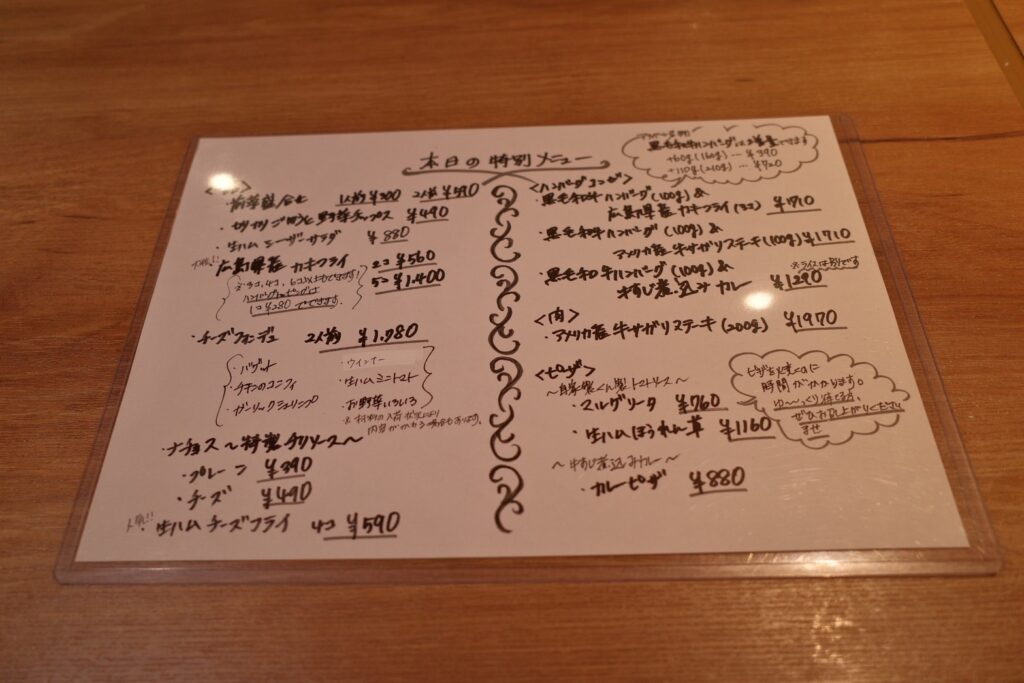 本日の特別メニュー
前菜盛合せ 1人前 ¥300 2人前 ¥590
・切りたてごぼうと野菜チップス ¥490
・生ハムシーザーサラダ ¥880
人気!!
広島県産 カキフライ 2コ ¥560
5コ ¥1,400
※3コ,4コ,6コ以上もできます!
ハンバーグトッピングは
1コ ¥280 でできます。
・チーズフォンデュ 2人前 ¥1,980
・バゲット ・ウインナー
・チキンのコンフィ ・生ハムミニトマト
・ガーリックシュリンプ ・お野菜いろいろ
※材料の入荷状況により
内容がかわる場合もあります。
ナチョス 〜特製チリソース〜
・プレーン ¥390
・チーズ ¥490
人気!!
生ハムチーズフライ 4コ ¥590
黒毛和牛ハンバーグは増量できます
+60g (160g) … ¥390
+110g (210g) … ¥720
<ハンバーグコンボ>
・黒毛和牛ハンバーグ (100g) &
広島県産 カキフライ (3コ) ¥1710
・黒毛和牛ハンバーグ (100g) &
アメリカ産 牛サガリステーキ (100g) ¥1710
・黒毛和牛ハンバーグ (100g) &
※ライスは別です
牛すじ煮込みカレー ¥1290
<肉>
・アメリカ産 牛サガリステーキ (200g) ¥1970
<ピザ>
〜自家製くん製トマトソース〜
・マルゲリータ ¥760
・生ハムほうれん草 ¥1160
〜牛すじ煮込みカレー〜
・カレーピザ ¥880
ピザを焼くのに
時間がかかります。
ゆ〜っくり待てる方、
ぜひお召し上がりください
ませ